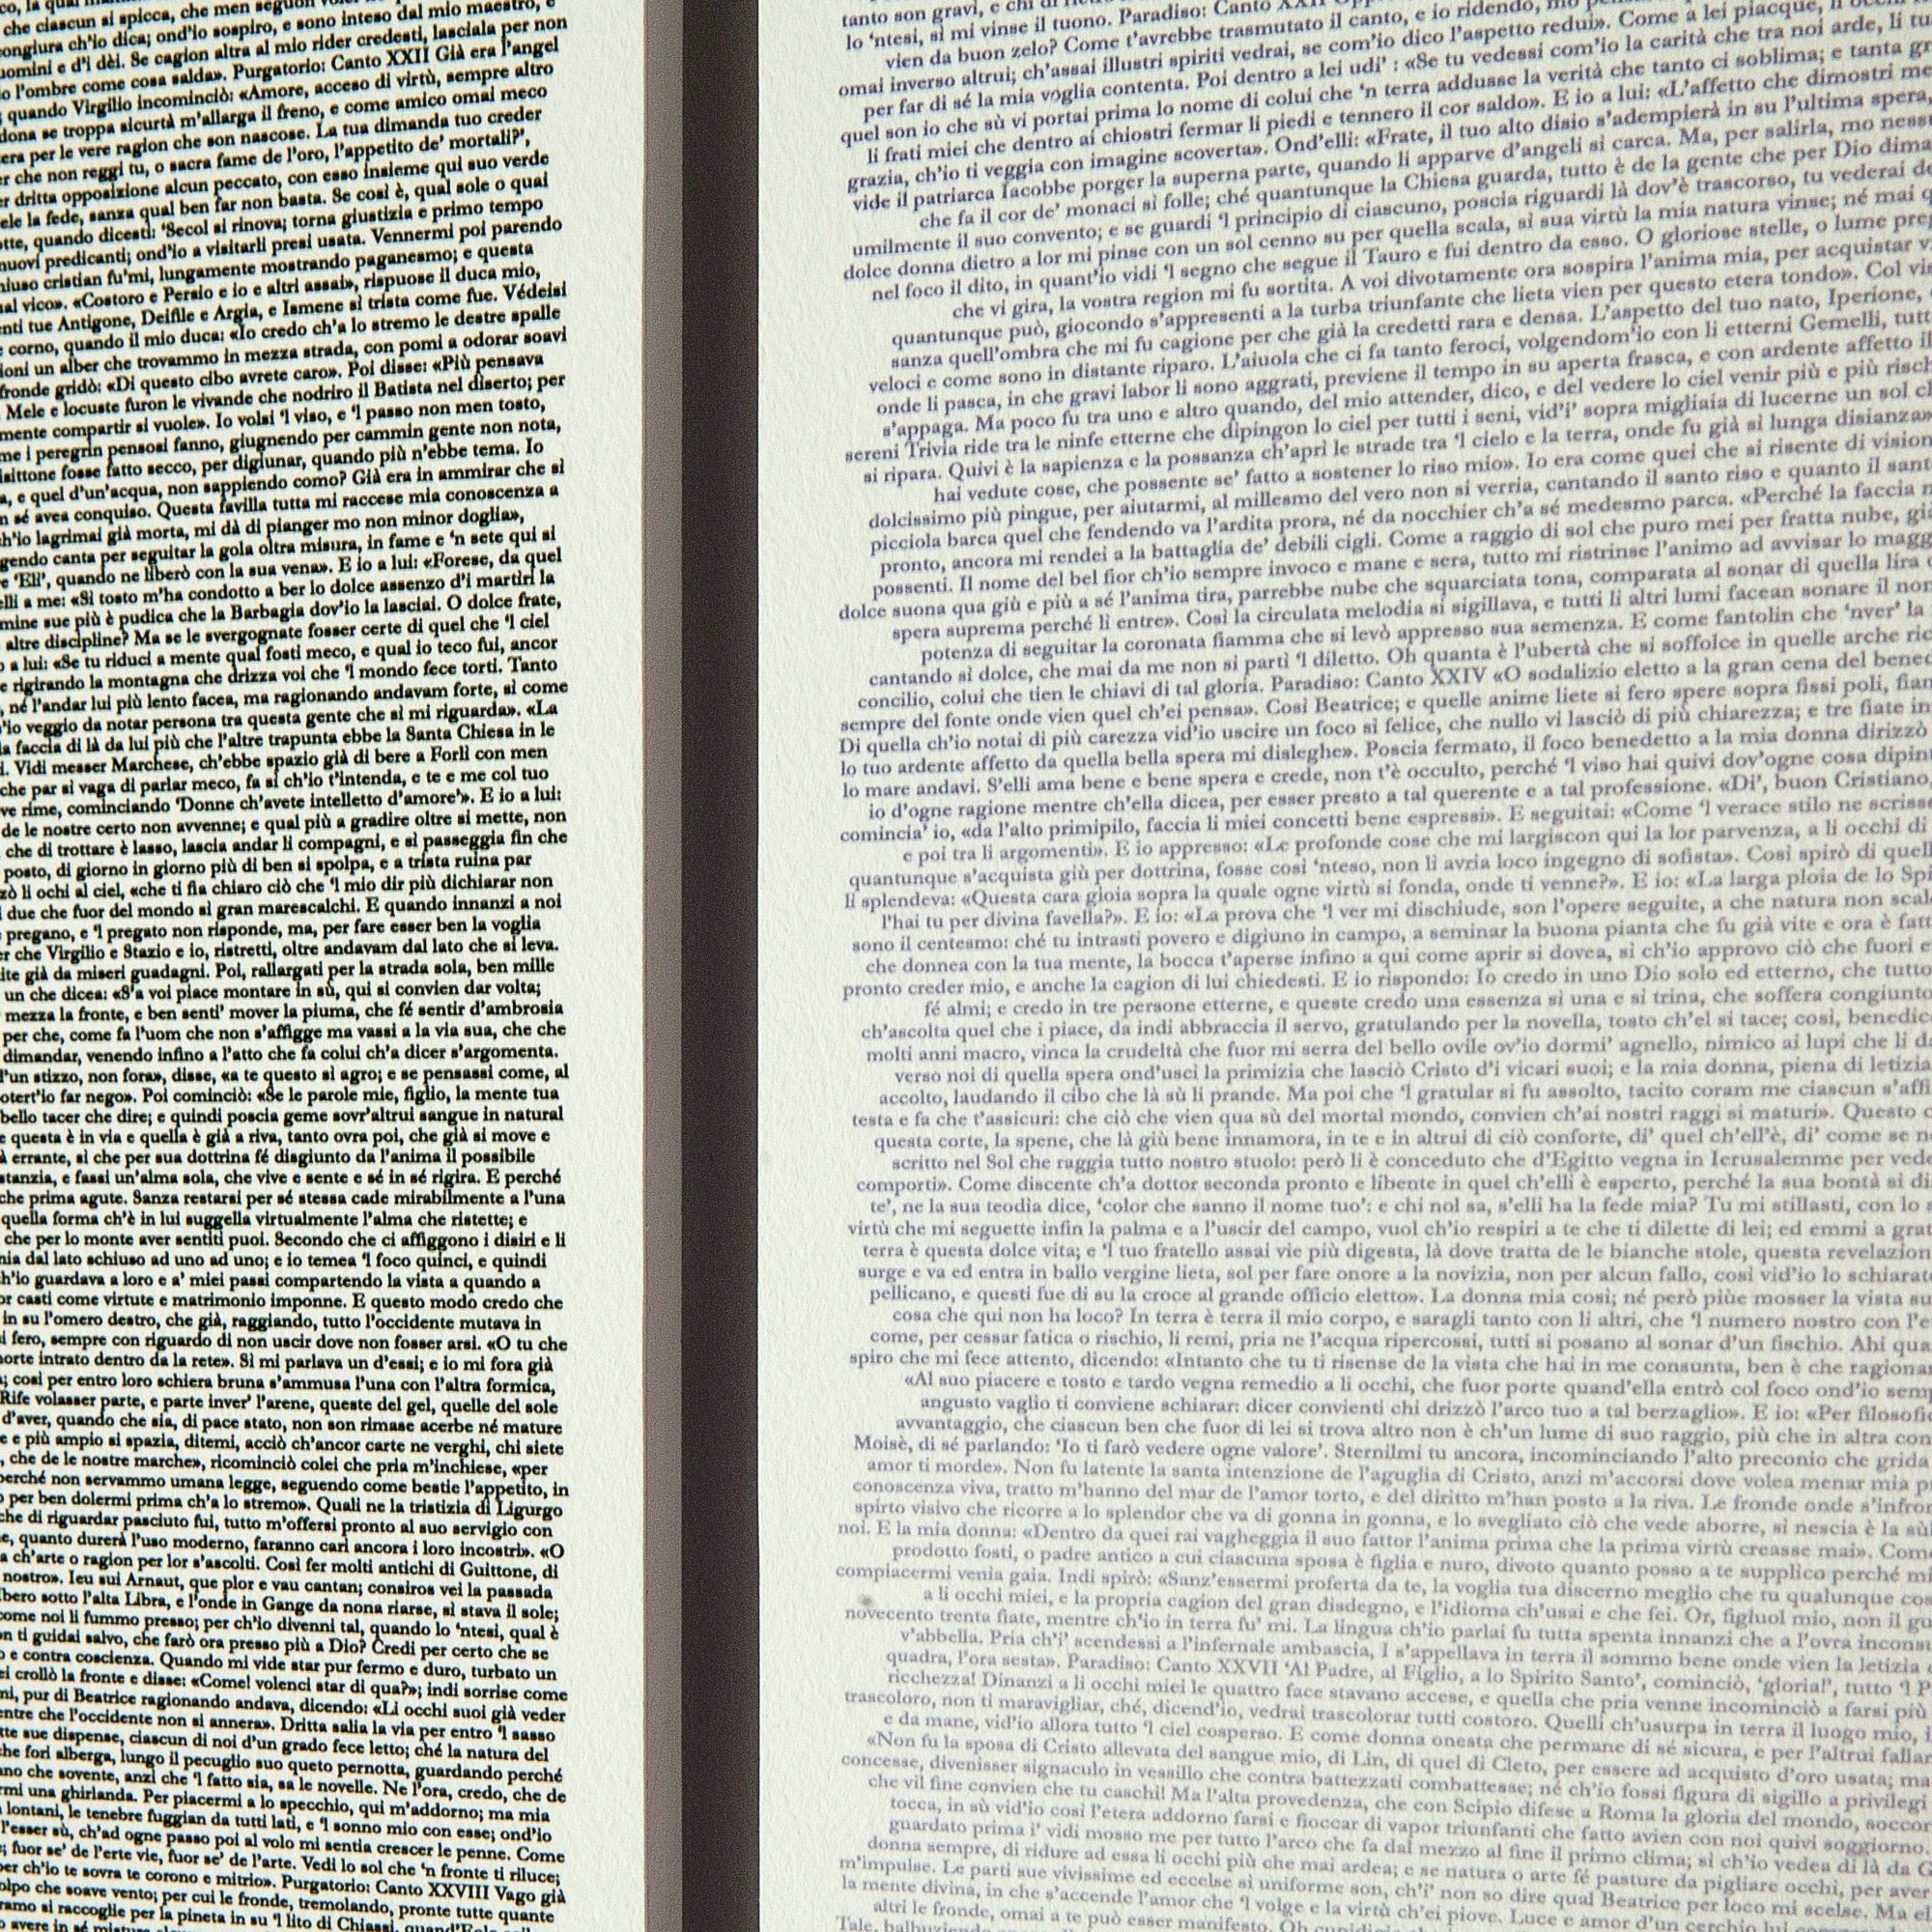 che ciascun si spicca, che men seguon
congiura ch'io dica; ond'io sospiro, e sono inteso dal mio maestro, e
uomini e d'i dèi. Se cagion altra al mio rider credesti, lasciala per non
io l'ombre come cosa salda». Purgatorio: Canto XXII Già era l'angel
quando Virgilio incominciò: «Amore, acceso di virtù, sempre altro
dona se troppa sicurtà m'allarga il freno, e come amico omai meco
era per le vere ragion che son nascose. La tua dimanda tuo creder
che non reggi tu, o sacra fame de l'oro, l'appetito de' mortali?',
dritta opposizione alcun peccato, con esso insieme qui suo verde
la fede, sanza qual ben far non basta. Se così è, qual sole o quai
quando dicesti: 'Secol si rinova; torna giustizia e primo tempo
nuovi predicanti; ond'io a visitarli presi usata. Vennermi poi parendo
chiuso cristian fu'mi, lungamente mostrando paganesmo; e questa
vico». «Costoro e Persio e io e altri assai», rispuose il duca mio,
tue Antigone, Deifile e Argia, e Ismene sì trista come fue. Védeisi
corno, quando il mio duca: «Io credo ch'a lo stremo le destre spalle
un alber che trovammo in mezza strada, con pomi a odorar soavi
fronde gridò: «Di questo cibo avrete caro». Poi disse: «Più pensava
Mele e locuste furon le vivande che nodriro il Batista nel diserto; per
mente compartir si vuole». Io volsi 'l viso, e 'l passo non men tosto,
i peregrin pensosi fanno, giugnendo per cammin gente non nota,
fosse fatto secco, per digiunar, quando più n'ebbe tema. Io
e quel d'un'acqua, non sappiendo como? Già era in ammirar che sì
sé avea conquiso. Questa favilla tutta mi raccese mia conoscenza a
ch'io lagrimai già morta, mi dà di pianger mo non minor doglia»,
canta per seguitar la gola oltra misura, in fame e 'n sete qui si
'Elì', quando ne liberò con la sua vena». E io a lui: «Forese, da quel
a me: «Sì tosto m'ha condotto a ber lo dolce assenzo d'i martìri la
sue più è pudica che la Barbagia dov'io la lasciai. O dolce frate,
altre discipline? Ma se le svergognate fosser certe di quel che 'l ciel
a lui: «Se tu riduci a mente qual fosti meco, e qual io teco fui, ancor
e rigirando la montagna che drizza voi che 'l mondo fece torti. Tanto
né l'andar lui più lento facea, ma ragionando andavam forte, sì come
veggio da notar persona tra questa gente che sì mi riguarda». «La
faccia di là da lui più che l'altre trapunta ebbe la Santa Chiesa in le
Vidi messer Marchese, ch'ebbe spazio già di bere a Forlì con men
che par sì vaga di parlar meco, fa sì ch'io t'intenda, e te e me col tuo
rime, cominciando 'Donne ch'avete intelletto d'amore'». E io a lui:
de le nostre certo non avvenne; e qual più a gradire oltre si mette, non
che di trottare è lasso, lascia andar li compagni, e sì passeggia fin che
posto, di giorno in giorno più di ben si spolpa, e a trista ruina par
li ochi al ciel, «che ti fia chiaro ciò che 'l mio dir più dichiarar non
due che fuor del mondo sì gran marescalchi. E quando innanzi a noi
pregano, e 'l pregato non risponde, ma, per fare esser ben la voglia
che Virgilio e Stazio e io, ristretti, oltre andavam dal lato che si leva.
già da miseri guadagni. Poi, rallargati per la strada sola, ben mille
un che dicea: «S'a voi piace montare in sù, qui si convien dar volta;
mezza la fronte, e ben senti' mover la piuma, che fé sentir d'ambrosia
per che, come fa l'uom che non s'affigge ma vassi a la via sua, che che
dimandar, venendo infino a l'atto che fa colui ch'a dicer s'argomenta.
d'un stizzo, non fora», disse, «a te questo sì agro; e se pensassi come, al
far nego». Poi cominciò: «Se le parole mie, figlio, la mente tua
bello tacer che dire; e quindi poscia geme sovr'altrui sangue in natural
questa è in via e quella è già a riva, tanto ovra poi, che già si move e
errante, sì che per sua dottrina fé disgiunto da l'anima il possibile
e fassi un'alma sola, che vive e sente e sé in sé rigira. E perché
che prima agute. Sanza restarsi per sé stessa cade mirabilmente a l'una
quella forma ch'è in lui suggella virtualmente l'alma che ristette; e
che per lo monte aver sentiti puoi. Secondo che ci affiggono i disiri e li
dal lato schiuso ad uno ad uno; e io temea 'l foco quinci, e quindi
ch'io guardava a loro e a' miei passi compartendo la vista a quando a
casti come virtute e matrimonio imponne. E questo modo credo che
in su l'omero destro, che già, raggiando, tutto l'occidente mutava in
fero, sempre con riguardo di non uscir dove non fosser arsi. «O tu che
intrato dentro da la rete». Sì mi parlava un d'essi; e io mi fora già
così per entro loro schiera bruna s'ammusa l'una con l'altra formica,
Rife volasser parte, e parte inver' l'arene, queste del gel, quelle del sole
d'aver, quando che sia, di pace stato, non son rimase acerbe né mature
e più ampio si spazia, ditemi, acciò ch'ancor carte ne verghi, chi siete
che de le nostre marche», ricominciò colei che pria m'inchiese, «per
perché non servammo umana legge, seguendo come bestie l'appetito, in
per ben dolermi prima ch'a lo stremo». Quali ne la tristizia di Ligurgo
che di riguardar pasciuto fui, tutto m'offersi pronto al suo servigio con
quanto durerà l'uso moderno, faranno cari ancora i loro incostri». «O
ch'arte o ragion per lor s'ascolti. Così fer molti antichi di Guittone, di
nostro». Ieu sui Arnaut, que plor e vau cantan; consiros vei la passada
sotto l'alta Libra, e l'onde in Gange da nona riarse, sì stava il sole;
come noi li fummo presso; per ch'io divenni tal, quando lo 'ntesi, qual è
ti guidai salvo, che farò ora presso più a Dio? Credi per certo che se
e contra coscienza. Quando mi vide star pur fermo e duro, turbato un
crollò la fronte e disse: «Come! volenci star di qua?»; indi sorrise come
pur di Beatrice ragionando andava, dicendo: «Li occhi suoi già veder
che l'occidente non si annera». Dritta salia la via per entro 'l sasso
sue dispense, ciascun di noi d'un grado fece letto; ché la natura del
che fori alberga, lungo il pecuglio suo queto pernotta, guardando perché
che sovente, anzi che 'l fatto sia, sa le novelle. Ne l'ora, credo, che de
una ghirlanda. Per piacermi a lo specchio, qui m'addorno; ma mia
lontani, le tenebre fuggian da tutti lati, e 'l sonno mio con esse; ond'io
l'esser sù, ch'ad ogne passo poi al volo mi sentia crescer le penne. Come
fuor se' de l'erte vie, fuor se' de l'arte. Vedi lo sol che 'n fronte ti riluce;
per ch'io te sovra te corono e mitrio». Purgatorio: Canto XXVIII Vago già
che soave vento; per cui le fronde, tremolando, pronte tutte quante
ramo si raccoglie per la pineta in su 'l lito di Chiassi, quand'Eolo
tanto son gravi, e chi di
lo 'ntesi, sì mi vinse il tuono. Paradiso: Canto XXII
vien da buon zelo? Come t'avrebbe trasmutato il canto, e io ridendo, mo
omai inverso altrui; ch'assai illustri spiriti vedrai, se com'io dico l'aspetto redui». Come a lei piacque, li occhi
per far di sé la mia voglia contenta. Poi dentro a lei udi' : «Se tu vedessi com'io la carità che tra noi arde, li tu
quel son io che sù vi portai prima lo nome di colui che 'n terra addusse la verità che tanto ci soblima; e tanta
li frati miei che dentro ai chiostri fermar li piedi e tennero il cor saldo». E io a lui: «L'affetto che dimostri
grazia, ch'io ti veggia con imagine scoverta». Ond'elli: «Frate, il tuo alto disio s'adempierà in su l'ultima spera,
vide il patriarca Iacobbe porger la superna parte, quando li apparve d'angeli sì carca. Ma, per salirla, mo
che fa il cor de' monaci sì folle; ché quantunque la Chiesa guarda, tutto è de la gente che per Dio
umilmente il suo convento; e se guardi 'l principio di ciascuno, poscia riguardi là dov'è trascorso, tu vederai
dolce donna dietro a lor mi pinse con un sol cenno su per quella scala, sì sua virtù la mia natura vinse; né mai
nel foco il dito, in quant'io vidi 'l segno che segue il Tauro e fui dentro da esso. O gloriose stelle, o lume
che vi gira, la vostra region mi fu sortita. A voi divotamente ora sospira l'anima mia, per acquistar
quantunque può, giocondo s'appresenti a la turba triunfante che lieta vien per questo etera tondo». Col
sanza quell'ombra che mi fu cagione per che già la credetti rara e densa. L'aspetto del tuo nato, Iperione,
veloci e come sono in distante riparo. L'aiuola che ci fa tanto feroci, volgendom'io con li etterni Gemelli,
onde li pasca, in che gravi labor li sono aggrati, previene il tempo in su aperta frasca, e con ardente affetto il
s'appaga. Ma poco fu tra uno e altro quando, del mio attender, dico, e del vedere lo ciel venir più e più
sereni Trivia ride tra le ninfe etterne che dipingon lo ciel per tutti i seni, vid'i' sopra migliaia di lucerne un sol
si ripara. Quivi è la sapienza e la possanza ch'aprì le strade tra 'l cielo e la terra, onde fu già sì lunga disianza»
hai vedute cose, che possente se' fatto a sostener lo riso mio». Io era come quei che si risente di
dolcissimo più pingue, per aiutarmi, al millesmo del vero non si verria, cantando il santo riso e quanto il
picciola barca quel che fendendo va l'ardita prora, né da nocchier ch'a sé medesmo parca. «Perché la faccia
pronto, ancora mi rendei a la battaglia de' debili cigli. Come a raggio di sol che puro mei per fratta nube, già
possenti. Il nome del bel fior ch'io sempre invoco e mane e sera, tutto mi ristrinse l'animo ad avvisar lo
dolce suona qua giù e più a sé l'anima tira, parrebbe nube che squarciata tona, comparata al sonar di quella lira
spera suprema perché lì entre». Così la circulata melodia si sigillava, e tutti li altri lumi facean sonare il
potenza di seguitar la coronata fiamma che si levò appresso sua semenza. E come fantolin che 'nver' la
cantando sì dolce, che mai da me non si partì 'l diletto. Oh quanta è l'ubertà che si soffolce in quelle arche
concilio, colui che tien le chiavi di tal gloria. Paradiso: Canto XXIV «O sodalizio eletto a la gran cena del
sempre del fonte onde vien quel ch'ei pensa». Così Beatrice; e quelle anime liete si fero spere sopra fissi poli,
Di quella ch'io notai di più carezza vid'io uscire un foco sì felice, che nullo vi lasciò di più chiarezza; e tre fiate
lo tuo ardente affetto da quella bella spera mi disleghe». Poscia fermato, il foco benedetto a la mia donna dirizzò
lo mare andavi. S'elli ama bene e bene spera e crede, non t'è occulto, perché 'l viso hai quivi dov'ogne cosa
io d'ogne ragione mentre ch'ella dicea, per esser presto a tal querente e a tal professione. «Di', buon Cristiano,
comincia' io, «da l'alto primipilo, faccia li miei concetti bene espressi». E seguitai: «Come 'l verace stilo ne
e poi tra li argomenti». E io appresso: «Le profonde cose che mi largiscon qui la lor parvenza, a li occhi di
quantunque s'acquista giù per dottrina, fosse così 'nteso, non lì avria loco ingegno di sofista». Così spirò di
lì splendeva: «Questa cara gioia sopra la quale ogne virtù si fonda, onde ti venne?». E io: «La larga ploia de lo
l'hai tu per divina favella?». E io: «La prova che 'l ver mi dischiude, son l'opere seguite, a che natura non
sono il centesmo: ché tu intrasti povero e digiuno in campo, a seminar la buona pianta che fu già vite e ora è
che donnea con la tua mente, la bocca t'aperse infino a qui come aprir si dovea, sì ch'io approvo ciò che fuori
pronto creder mio, e anche la cagion di lui chiedesti. E io rispondo: Io credo in uno Dio solo ed etterno, che tutto
fé almi; e credo in tre persone etterne, e queste credo una essenza sì una e sì trina, che soffera congiunto
ch'ascolta quel che i piace, da indi abbraccia il servo, gratulando per la novella, tosto ch'el si tace; così,
molti anni macro, vinca la crudeltà che fuor mi serra del bello ovile ov'io dormi' agnello, nimico ai lupi che li
verso noi di quella spera ond'uscì la primizia che lasciò Cristo d'i vicari suoi; e la mia donna, piena di letizia
accolto, laudando il cibo che là sù li prande. Ma poi che 'l gratular si fu assolto, tacito coram me ciascun
testa e fa che t'assicuri: che ciò che vien qua sù del mortal mondo, convien ch'ai nostri raggi si maturi». Questo
questa corte, la spene, che là giù bene innamora, in te e in altrui di ciò conforte, di' quel ch'ell'è, di' come se
scritto nel Sol che raggia tutto nostro stuolo: però li è conceduto che d'Egitto vegna in Ierusalemme per
comporti». Come discente ch'a dottor seconda pronto e libente in quel ch'elli è esperto, perché la sua bontà si
te', ne la sua teodìa dice, 'color che sanno il nome tuo': e chi nol sa, s'elli ha la fede mia? Tu mi stillasti, con lo
virtù che mi seguette infin la palma e a l'uscir del campo, vuol ch'io respiri a te che ti dilette di lei; ed emmi a
terra è questa dolce vita; e 'l tuo fratello assai vie più digesta, là dove tratta de le bianche stole, questa
surge e va ed entra in ballo vergine lieta, sol per fare onore a la novizia, non per alcun fallo, così vid'io lo
pellicano, e questi fue di su la croce al grande officio eletto». La donna mia così; né però piùe mosser la vista
cosa che qui non ha loco? In terra è terra il mio corpo, e saragli tanto con li altri, che 'l numero nostro con
come, per cessar fatica o rischio, li remi, pria ne l'acqua ripercossi, tutti si posano al sonar d'un fischio. Ahi
spiro che mi fece attento, dicendo: «Intanto che tu ti risense de la vista che hai in me consunta, ben è che
«Al suo piacere e tosto e tardo vegna remedio a li occhi, che fuor porte quand'ella entrò col foco ond'io
angusto vaglio ti conviene schiarar: dicer convienti chi drizzò l'arco tuo a tal berzaglio». E io: «Per
avvantaggio, che ciascun ben che fuor di lei si trova altro non è ch'un lume di suo raggio, più che in altra
Moisè, di sé parlando: 'Io ti farò vedere ogne valore'. Sternilmi tu ancora, incominciando l'alto preconio che grida
amor ti morde». Non fu latente la santa intenzione de l'aguglia di Cristo, anzi m'accorsi dove volea menar mia
conoscenza viva, tratto m'hanno del mar de l'amor torto, e del diritto m'han posto a la riva. Le fronde onde
spirto visivo che ricorre a lo splendor che va di gonna in gonna, e lo svegliato ciò che vede aborre, sì nescia è la
noi. E la mia donna: «Dentro da quei rai vagheggia il suo fattor l'anima prima che la prima virtù creasse mai».
prodotto fosti, o padre antico a cui ciascuna sposa è figlia e nuro, divoto quanto posso a te supplico perché
compiacermi venia gaia. Indi spirò: «Sanz'essermi proferta da te, la voglia tua discerno meglio che tu qualunque
a li occhi miei, e la propria cagion del gran disdegno, e l'idioma ch'usai e che fei. Or, figluol mio, non il
novecento trenta fiate, mentre ch'io in terra fu' mi. La lingua ch'io parlai fu tutta spenta innanzi che a l'ovra
v'abbella. Pria ch'i' scendessi a l'infernale ambascia, I s'appellava in terra il sommo bene onde vien la letizia
quadra, l'ora sesta». Paradiso: Canto XXVII 'Al Padre, al Figlio, a lo Spirito Santo', cominciò, 'gloria!', tutto 'l
ricchezza! Dinanzi a li occhi miei le quattro face stavano accese, e quella che pria venne incominciò a farsi più
trascoloro, non ti maravigliar, ché, dicend'io, vedrai trascolorar tutti costoro. Quelli ch'usurpa in terra il luogo mio,
e da mane, vid'io allora tutto 'l ciel cosperso. E come donna onesta che permane di sé sicura, e per l'altrui
«Non fu la sposa di Cristo allevata del sangue mio, di Lin, di quel di Cleto, per essere ad acquisto d'oro usata;
concesse, divenisser signaculo in vessillo che contra battezzati combattesse; né ch'io fossi figura di sigillo a privilegi
che vil fine convien che tu caschi! Ma l'alta provedenza, che con Scipio difese a Roma la gloria del mondo,
tocca, in sù vid'io così l'etera addorno farsi e fioccar di vapor triunfanti che fatto avien con noi quivi soggiorno.
guardato prima i' vidi mosso me per tutto l'arco che fa dal mezzo al fine il primo clima; sì ch'io vedea di là da
donna sempre, di ridure ad essa li occhi più che mai ardea; e se natura o arte fé pasture da pigliare occhi, per
m'impulse. Le parti sue vivissime ed eccelse sì uniforme son, ch'i' non so dire qual Beatrice per loco mi scelse. Ma
la mente divina, in che s'accende l'amor che 'l volge e la virtù ch'ei piove. Luce e amor d'un cerchio
altri le fronde, omai a te può esser manifesto. Oh
Tale, balbuziendo